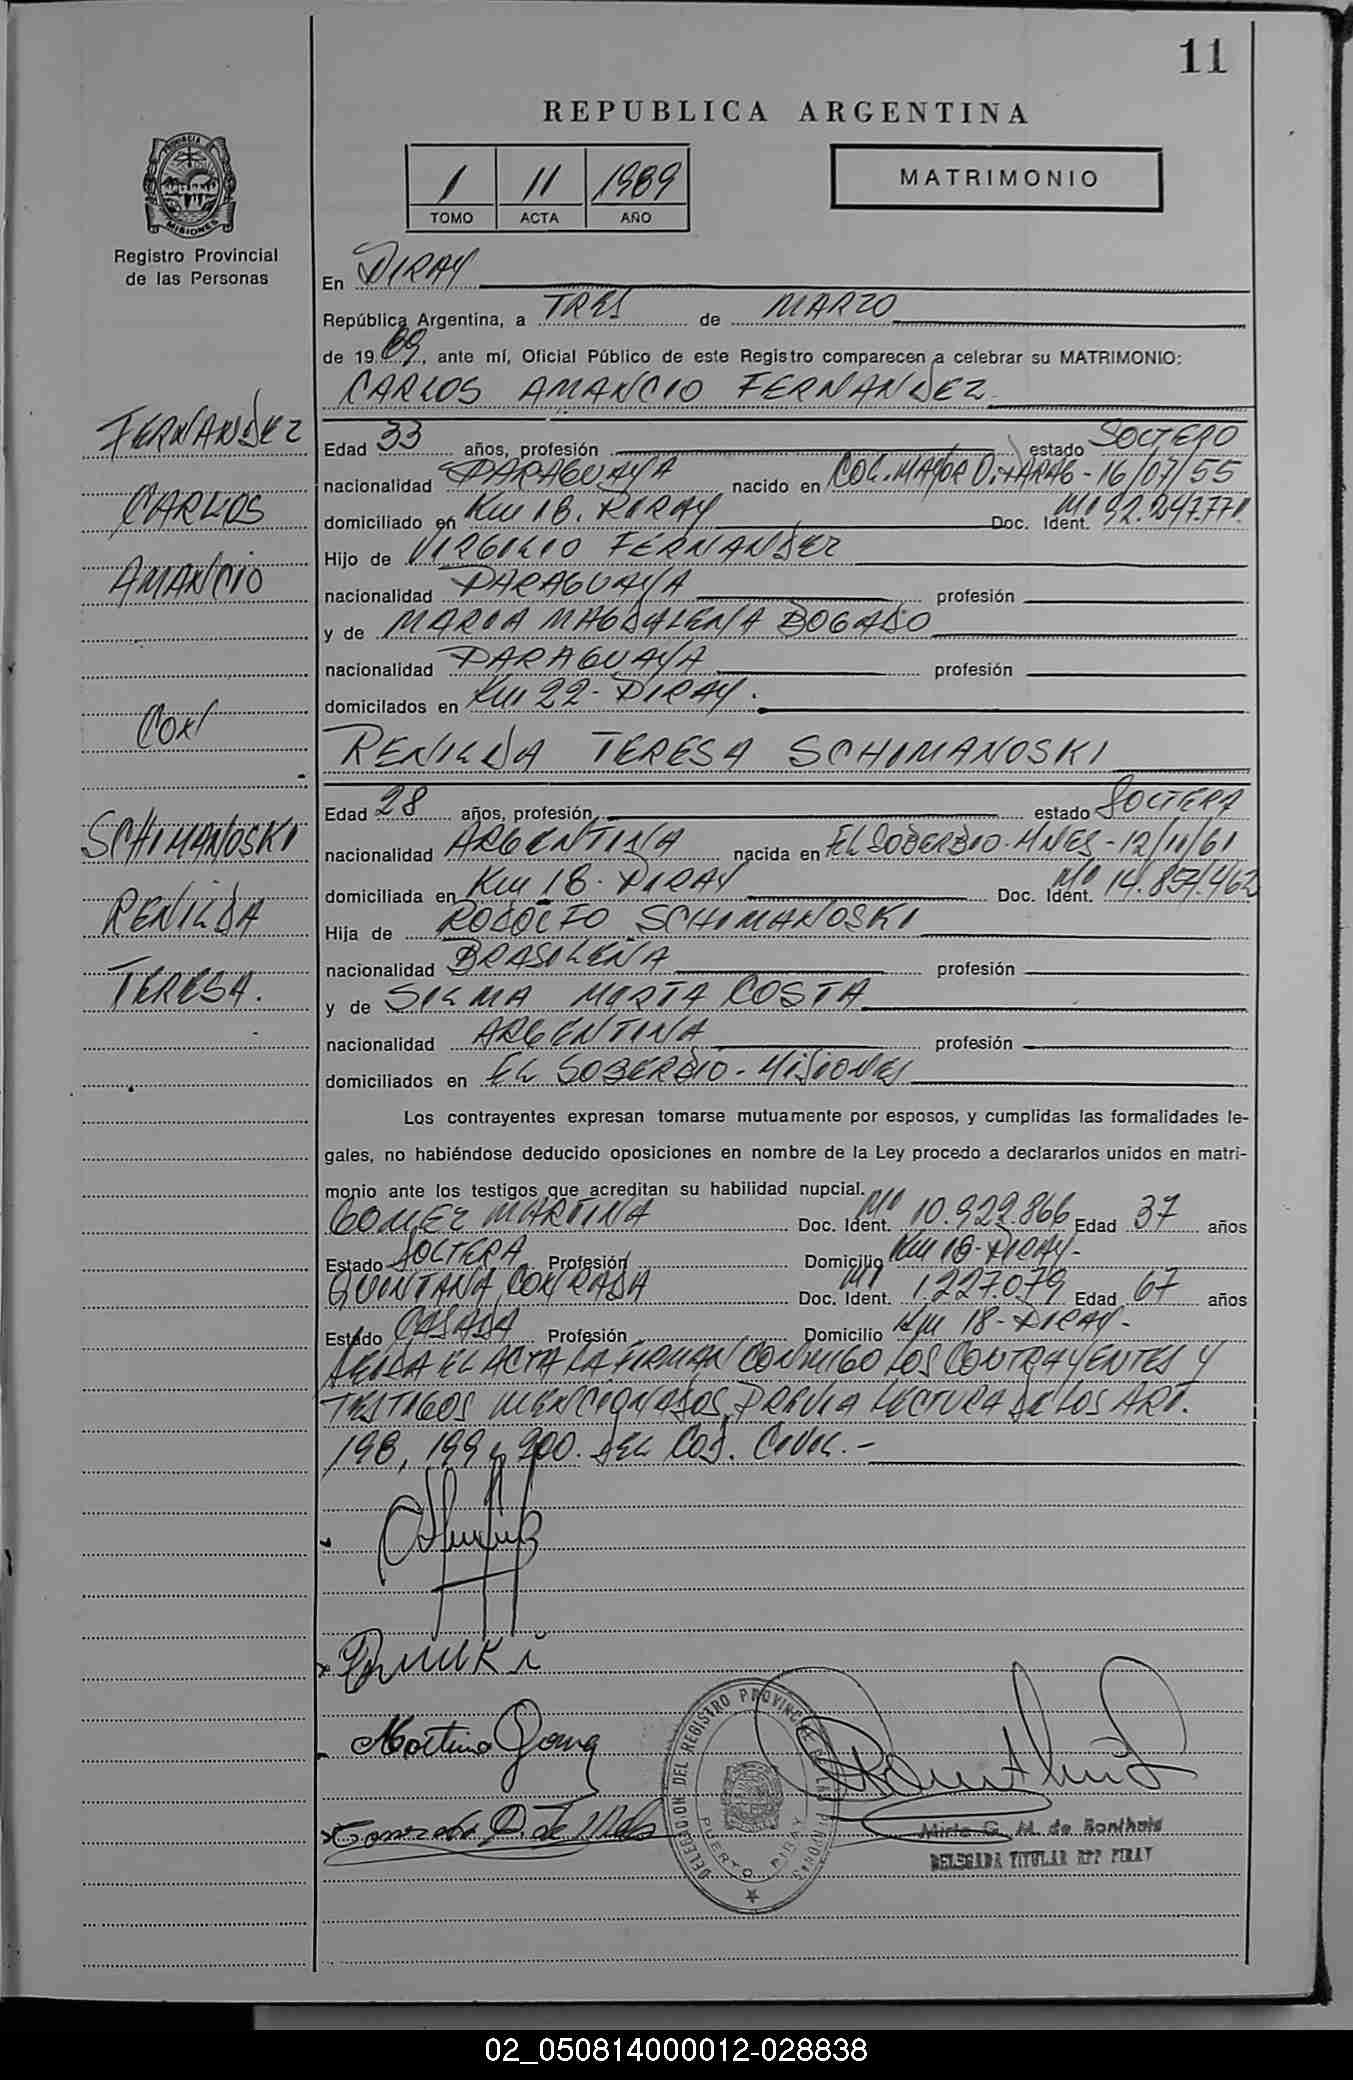 11
REPUBLICA ARGENTINA
1 11 1989
TOMO ACTA AÑO
MATRIMONIO
PROVINCIA MISIONES
Registro Provincial
de las Personas
En PIRAY
República Argentina, a TRES de MARZO
de 1989, ante mí, Oficial Público de este Registro comparecen a celebrar su MATRIMONIO:
CARLOS AMANCIO FERNANDEZ
FERNANDEZ
CARLOS
AMANCIO
CON
SCHIMANOSKI
RENILDA
TERESA.
Edad 33 años, profesión estado SOLTERO
nacionalidad PARAGUAYA nacido en COL. MAYOR - 16/07/55
domiciliado en Km 18. PIRAY Doc. Ident. MI 92.247.771
Hijo de VIRGILIO FERNANDEZ
nacionalidad PARAGUAYA profesión
y de MARIA MAGDALENA BOGADO
nacionalidad PARAGUAYA profesión
domicilados en Km 22 - PIRAY.
RENILDA TERESA SCHIMANOSKI
Edad 28 años, profesión estado SOLTERA
nacionalidad ARGENTINA nacida en EL SOBERBIO - MNES - 12/11/61
domiciliada en Km 18 - PIRAY Doc. Ident. MI 14.857.462
Hija de RODOLFO SCHIMANOSKI
nacionalidad BRASILEÑA profesión
y de SILMA MIRTA COSTA
nacionalidad ARGENTINA profesión
domiciliados en EL SOBERBIO - MISIONES
Los contrayentes expresan tomarse mutuamente por esposos, y cumplidas las formalidades le-
gales, no habiéndose deducido oposiciones en nombre de la Ley procedo a declararlos unidos en matri-
monio ante los testigos que acreditan su habilidad nupcial.
GOMEZ MARTINA Doc. Ident. MI 10.929.866 Edad 37 años
Estado SOLTERA Profesión Domicilio Km 18 - PIRAY -
QUINTANA CONRADA Doc. Ident. MI 1.227.079 Edad 67 años
Estado CASADA Profesión Domicilio Km 18 - PIRAY -
LEIDA EL ACTA LA FIRMAN CONMIGO LOS CONTRAYENTES Y
TESTIGOS MENCIONADOS, PREVIA LECTURA DE LOS ART.
198, 199 y 200. DEL COD. CIVIL. -
Martina Gomez
DELEGACION DEL REGISTRO PROVINCIAL DE LAS PERSONAS
PUERTO PIRAY
Mirta G. M. de Bonthuis
DELEGADA TITULAR RPP PIRAY
02_050814000012-028838